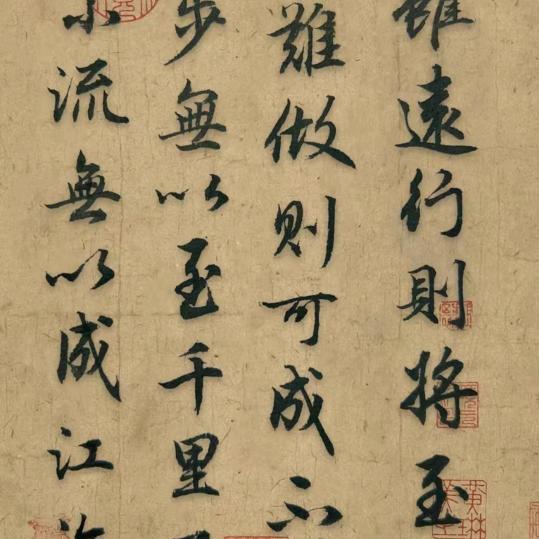 雖遠行則將至
難做則可成不
步無以至千里不
小流無以成江海